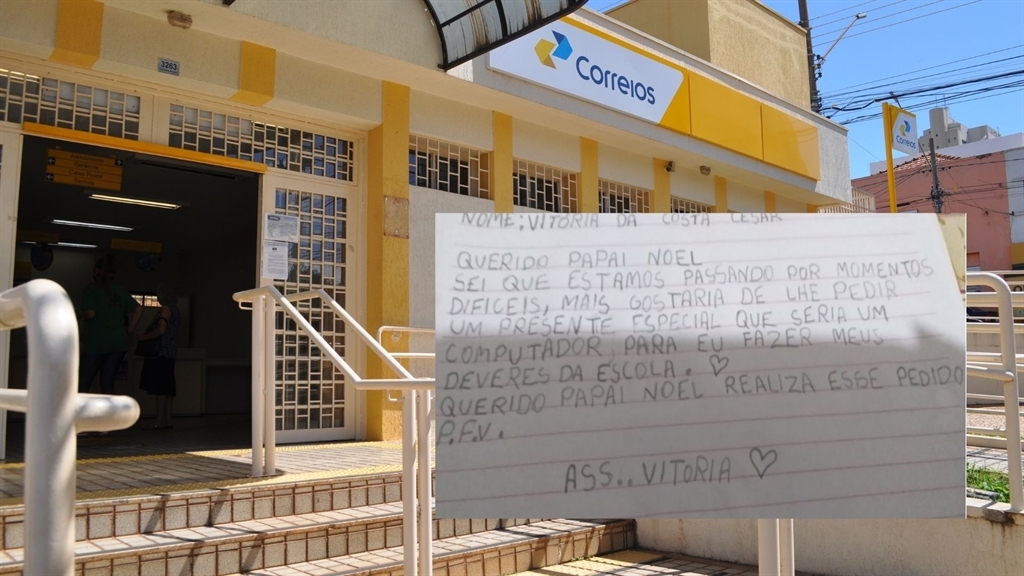 3263
Correios
Correios
NOME: VITORIA DA COSTA CESAR
QUERIDO PAPAI NOEL
SEI QUE ESTAMOS PASSANDO POR MOMENTOS
DIFICEIS, MAIS GOSTARIA DE LHE PEDIR
UM PRESENTE ESPECIAL QUE SERIA UM
COMPUTADOR PARA EU FAZER MEUS
DEVERES DA ESCOLA. ♡
QUERIDO PAPAI NOEL REALIZA ESSE PEDIDO
P.F.V.
ASS.. VITORIA ♡